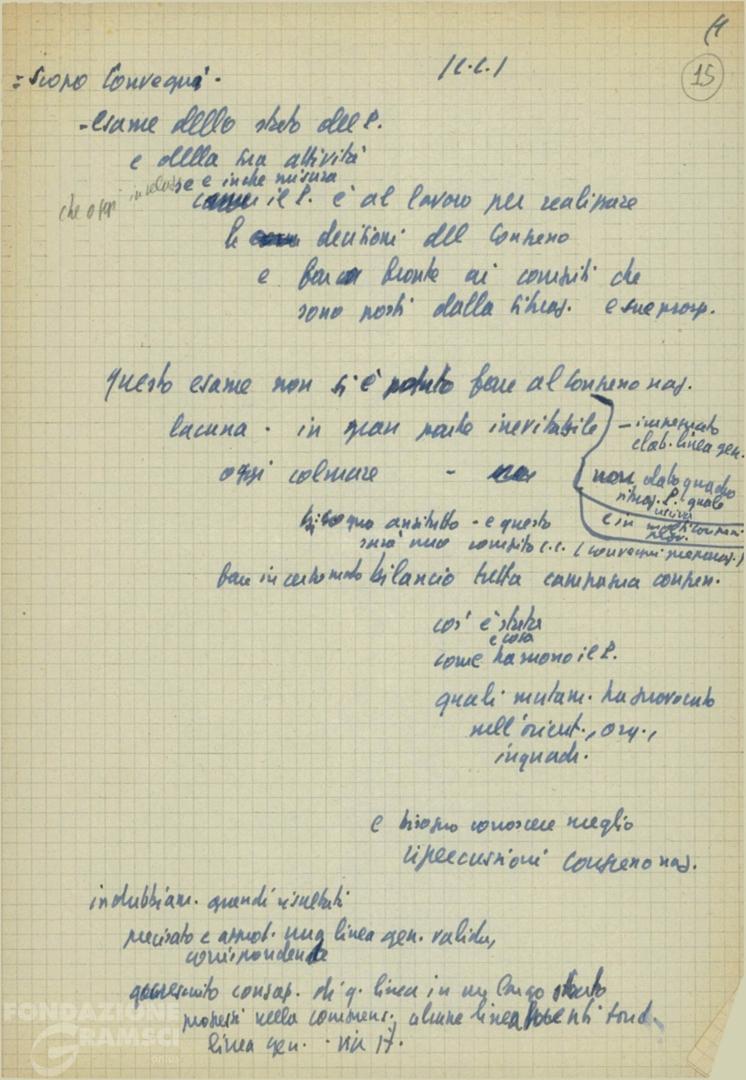 15
/C.C./
= Scopo Convegni.
- esame dello stato del P.
e della sua attività
se e in che misura
che oggi
il P. è al lavoro per realizzare
le decisioni del Congresso
e far fronte ai compiti che
sono posti dalla situaz. e sue prosp.
Questo esame non si è potuto fare al Congresso naz.
lacuna - in gran parte inevitabile
- impegnato
elab. linea gen.
oggi colmare -
non dato quadro
situaz. P. quale
usciva
e in
bisogna anzitutto - e questo
sarà uno compito C.C. (convegni preparaz.)
fare in certo modo bilancio tutta campagna congr.
cos' è stata
e cosa
come ha mosso il P.
quali mutam. ha provocato
nell'orient., org.,
inquadr.
e bisogna conoscere meglio
ripercussioni Congresso naz.
indubbiam. grandi risultati
precisato e approf. una linea gen. valida,
corrispondente
accresciuto consap. di q. linea in un largo strato
progressi nella comprens. alcune linea fond.
linea gen. - via It.
FONDAZIONE
GRAMSCI
onlus